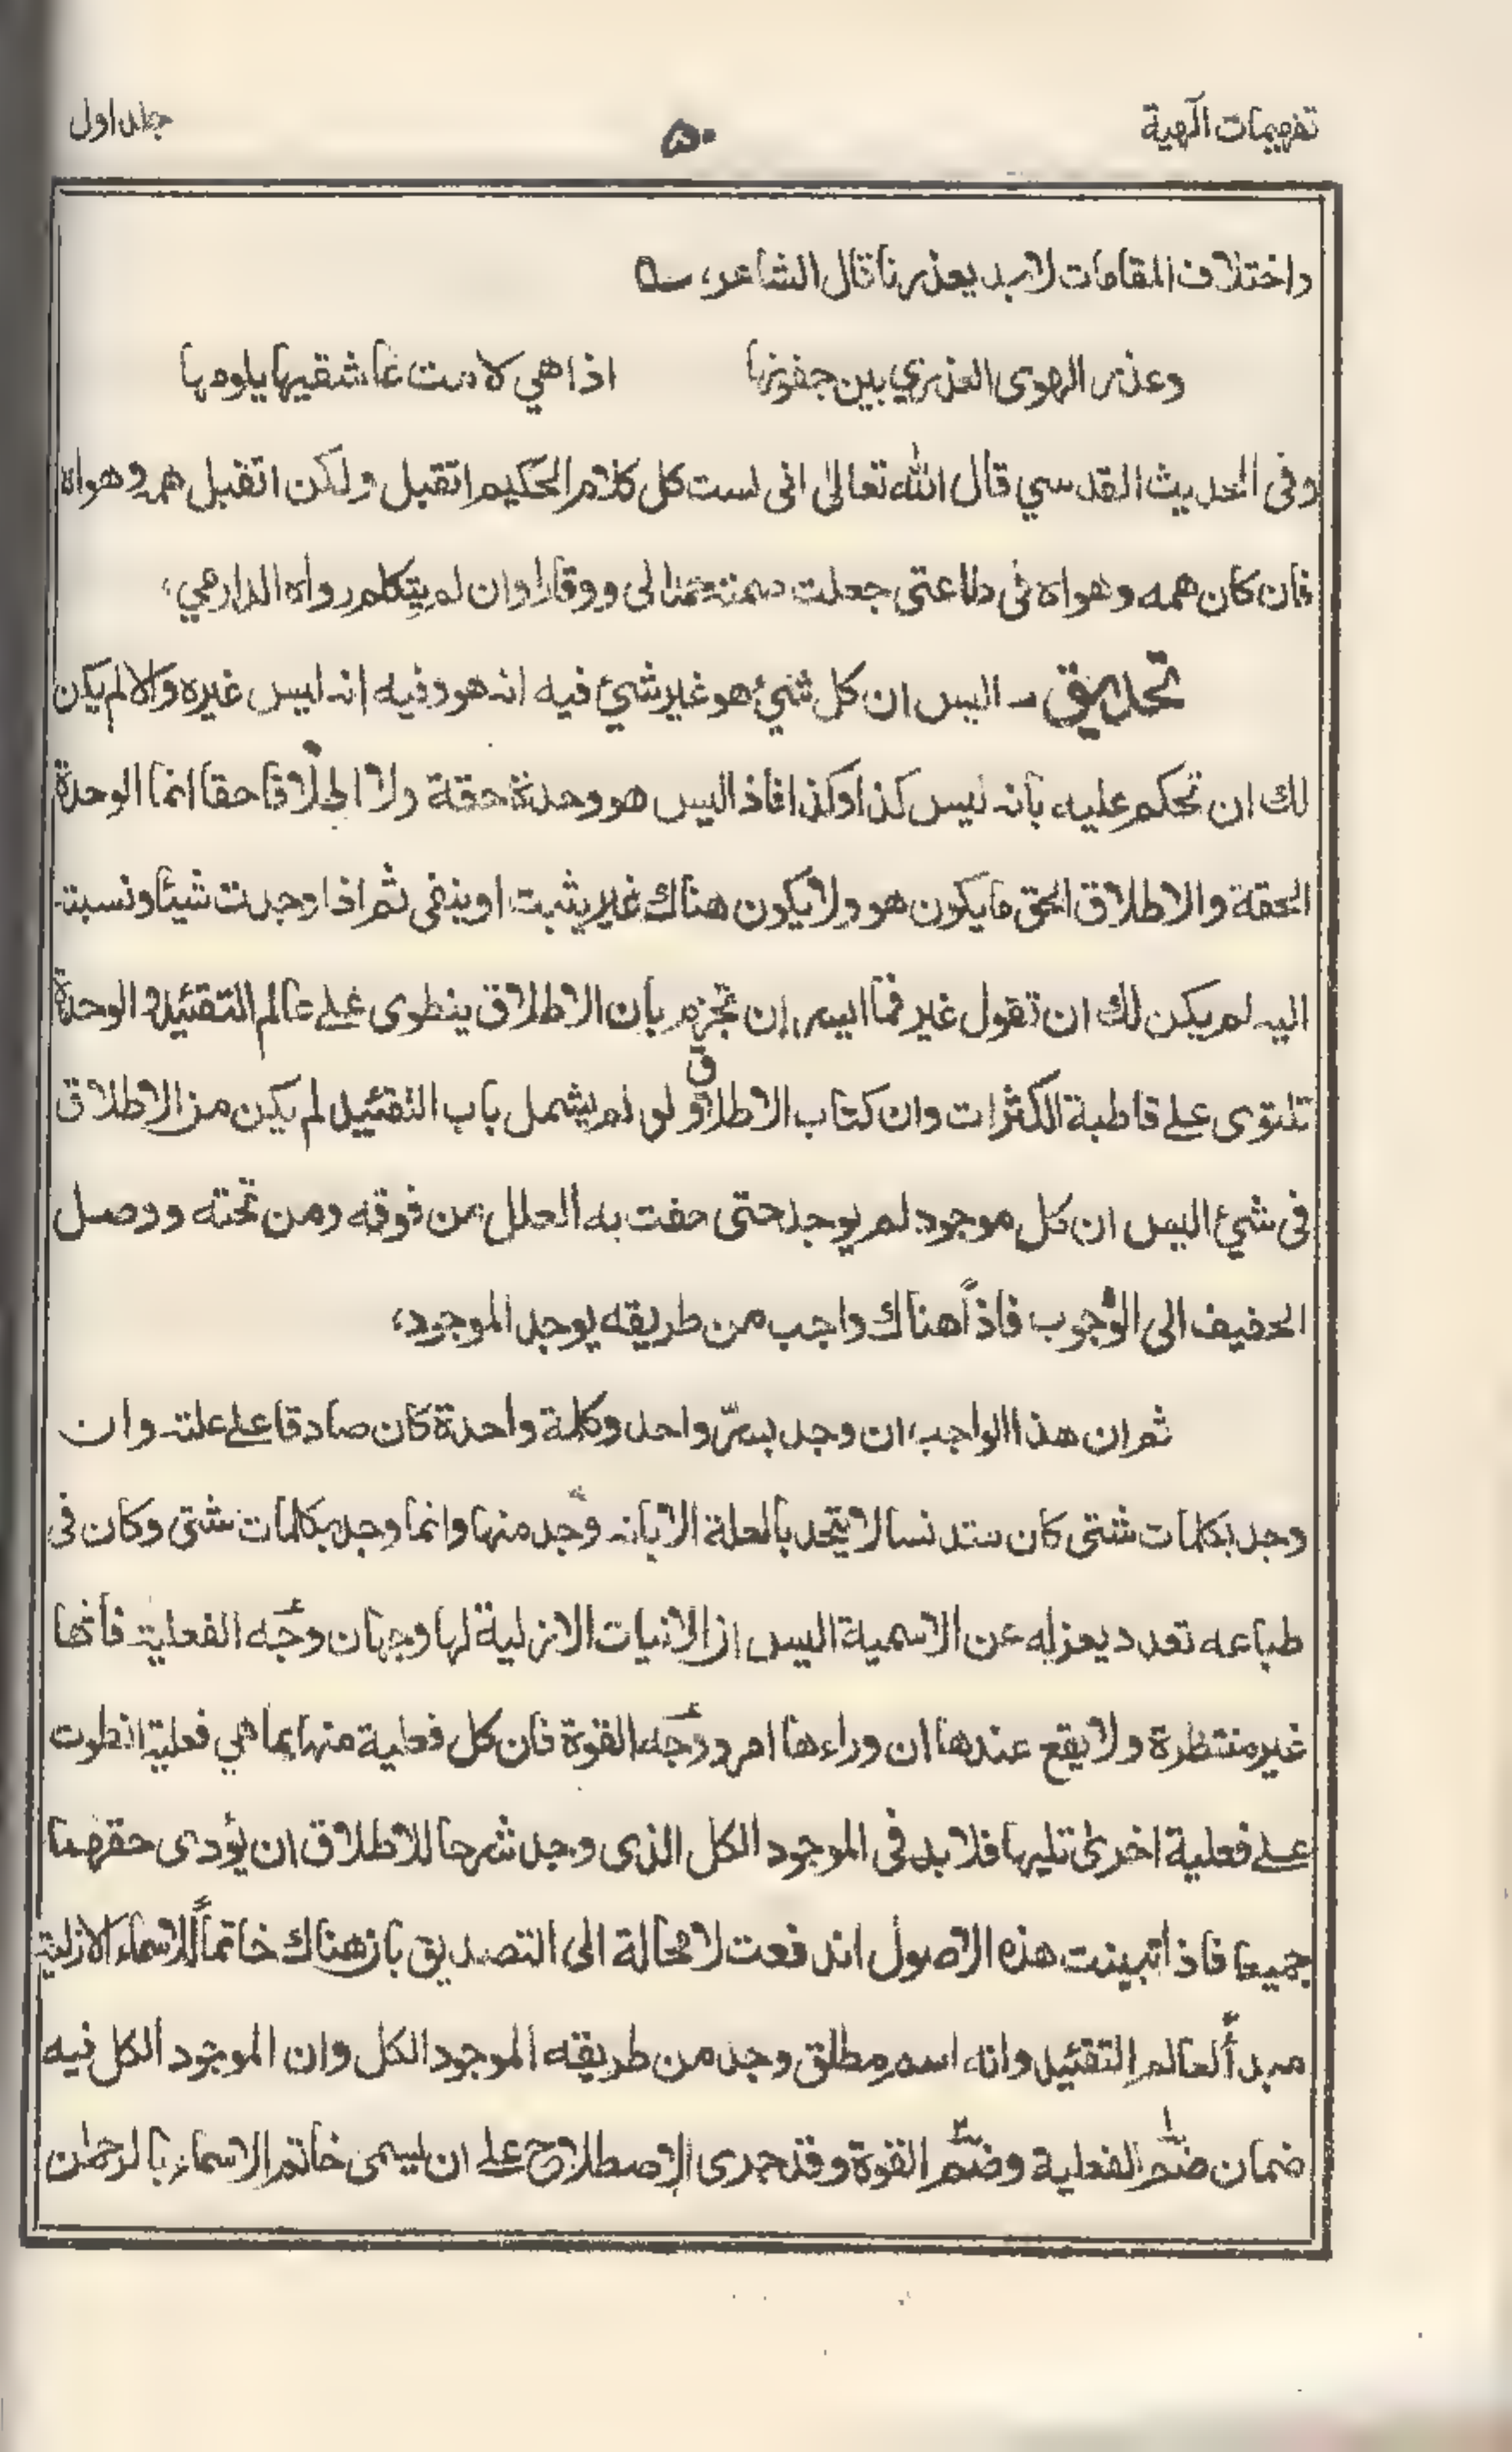 تفهيمات الٓهية
۵۰
جلد اول
واختلاف المقامات لابد يعذرنا قال الشاعر، ؎
وعذر الهوى العذري بين جفونها اذا هي لامت عاشقيها يلومها
وفى الحديث القدسي قال الله تعالىٰ انى لست كل كلام الحكيم اتقبل ولكن اتقبل همه وهواه
فان كان همه وهواه فى طاعتى جعلت صمته حمدا لى ووقارا وان لم يتكلم رواه الدارمي،
تحديق ــ اليس ان كل شيئ هو غير شيئ فيه انه هو وفيه انه ليس غيره والا لم يكن
لك ان تحكم عليه بانه ليس كذا وكذا فاذ اليس هو وحدة حقة ولا اطلاقا حقا انما الوحدة
الحقة والاطلاق الحق ما يكون هو ولا يكون هناك غير يثبت او ينفى ثم اذا وجدت شيئا ونسبته
اليه لم يكن لك ان تقول غير فما اليس ان تجزم بان الاطلاق ينطوى علے عالم التقئيد والوحدة
تلتوى علے قاطبة الكثرات وان كتاب الاطلاق لو لم يشمل باب التقئيد لم يكن من الاطلاق
فى شيئ اليس ان كل موجود لم يوجد حتى حفت به العلل من فوقه ومن تحته ووصل
الحفيف الى الوجوب فاذاً هناك واجب من طريقه يوجد الموجود،
ثم ان هذا الواجب ان وجد بسرّ واحد وكلمة واحدة كان صادقا علے علته وان
وجد بكلمات شتى كان متدنسا لا يتحد بالعلة الا بانه وجد منها وانما وجد بكلمات شتى وكان فى
طباعه تعدد يعزله عن الاسمية اليس ان الانيات الازلية لها وجهان وجه الفعلية فانها
غير منتظرة ولا يقع عندها ان وراءها امر ووجه القوة فان كل فعلية منها بما هي فعلية انطوت
علے فعلية اخرىٰ تليها فلا بد فى الموجود الكل الذى وجد شرحا للاطلاق ان يؤدى حقهما
جميعا فاذا تبينت هذه الاصول اندفعت لا محالة الى التصديق بان هناك خاتماً للاسماء الازلية
مبدأ لعالم التقئيد وانه اسم مطلق وجد من طريقه الموجود الكل وان الموجود الكل فيه
ضمان ضم الفعلية وضم القوة وقد جرى الاصطلاح علے ان يسمى خاتم الاسماء بالرحمٰن